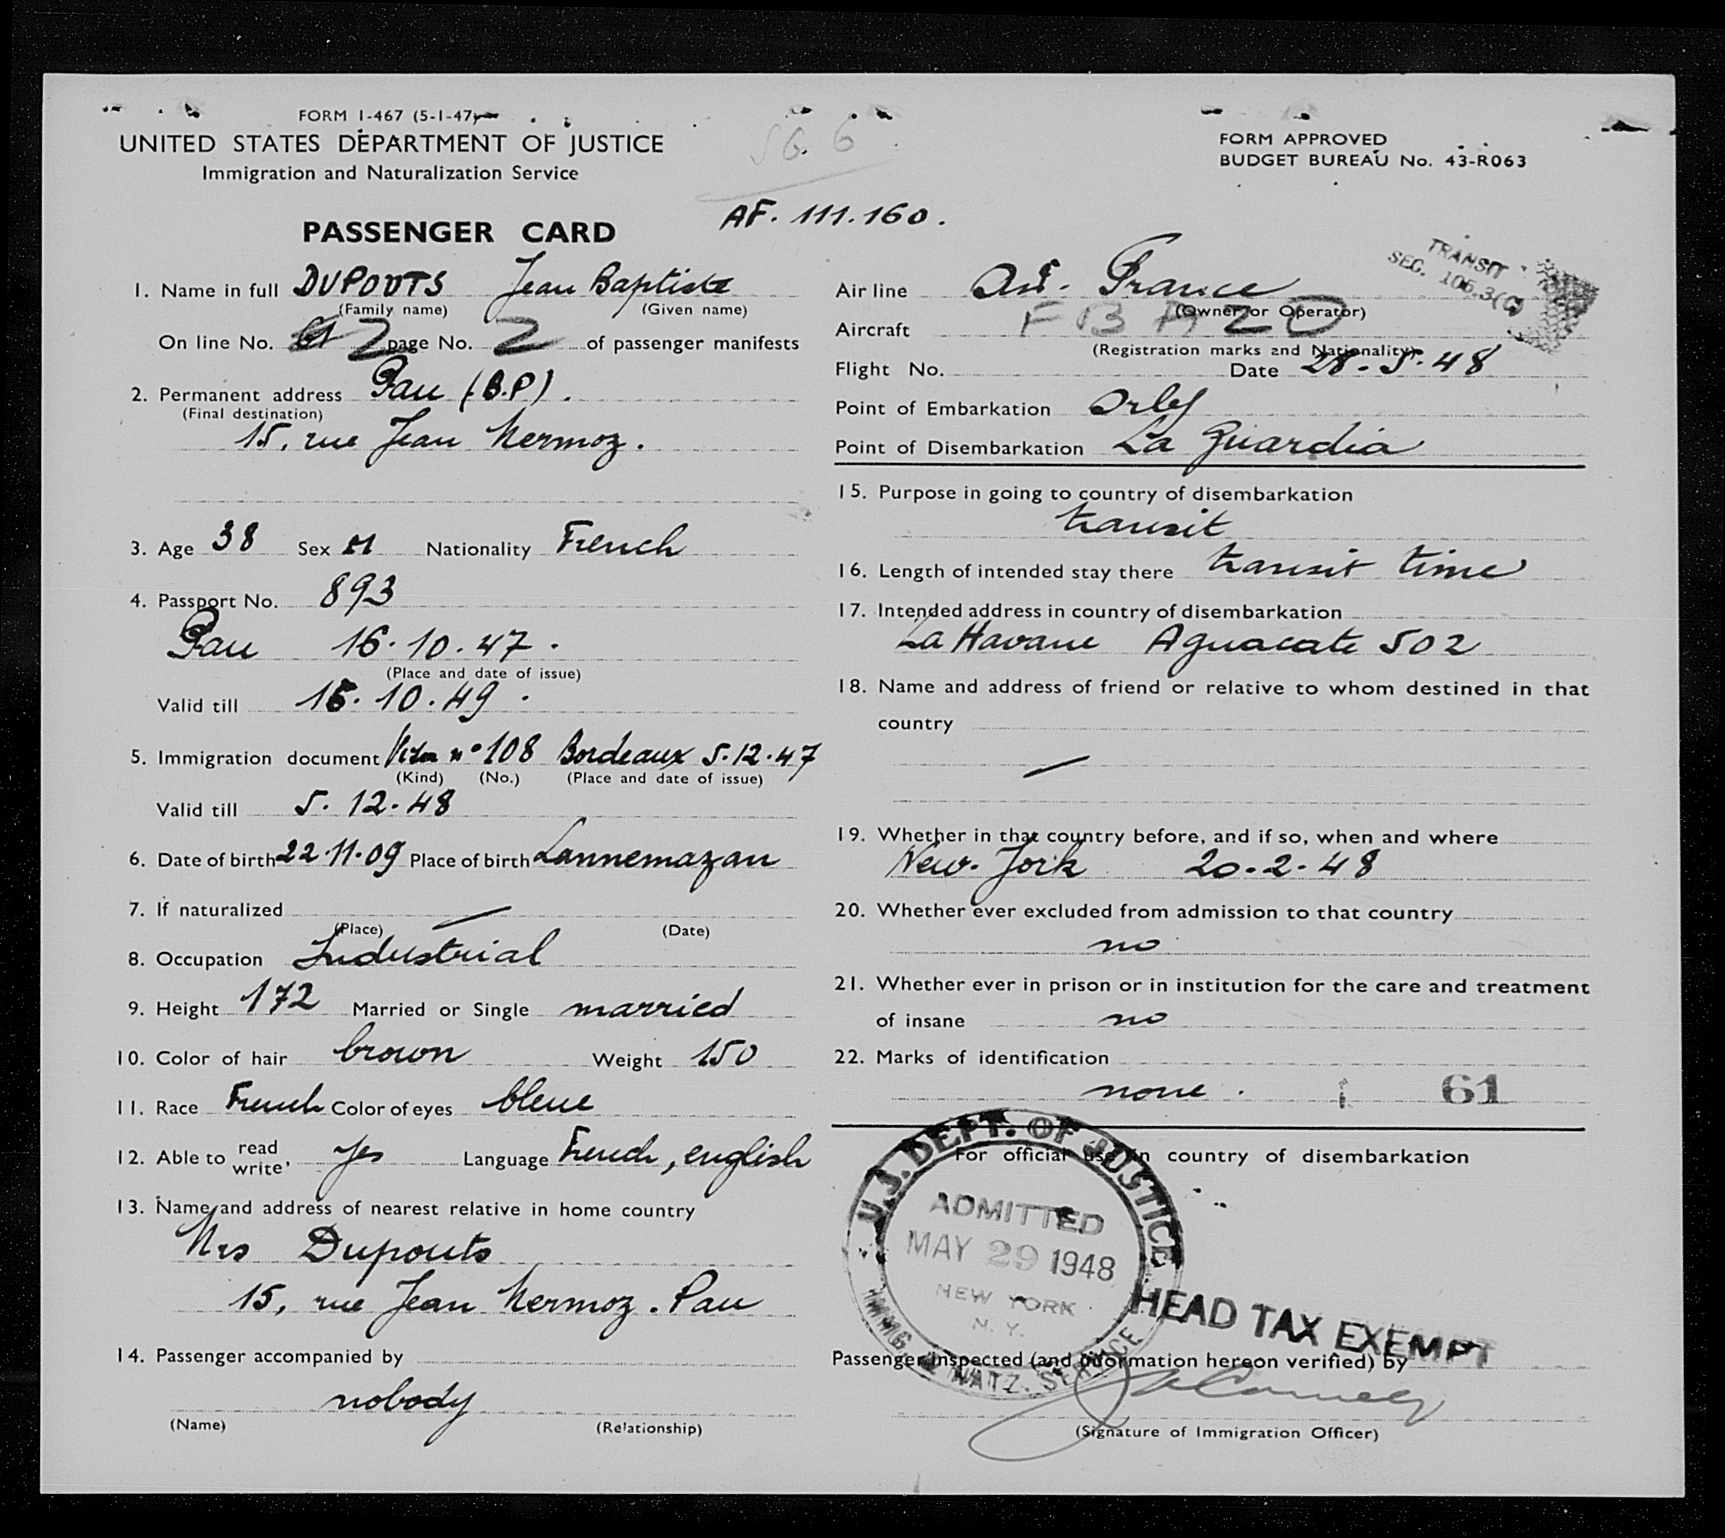 FORM I-467 (5-1-47)
UNITED STATES DEPARTMENT OF JUSTICE
Immigration and Naturalization Service
FORM APPROVED
BUDGET BUREAU No. 43-R063
PASSENGER CARD
AF. 111.160.
1. Name in full DUPOUTS Jean Baptiste
(Family name) (Given name)
On line No. 2 page No. 2 of passenger manifests
2. Permanent address Pau (B.P).
(Final destination)
15, rue Jean Mermoz.
3. Age 38 Sex M Nationality French
4. Passport No. 893
Pau 16.10.47.
(Place and date of issue)
Valid till 16.10.49.
5. Immigration document Visa n° 108 Bordeaux 5.12.47
(Kind) (No.) (Place and date of issue)
Valid till 5.12.48
6. Date of birth 22.11.09 Place of birth Lannemazan
7. If naturalized —
(Place) (Date)
8. Occupation Industrial
9. Height 172 Married or Single married
10. Color of hair brown Weight 150
11. Race French Color of eyes bleue
12. Able to read write, yes Language French, english
13. Name and address of nearest relative in home country
Mrs Dupouts
15, rue Jean Mermoz. Pau
14. Passenger accompanied by
nobody
(Name) (Relationship)
TRANSIT
SEC. 106.3(C)
Air line Air France
(Owner or Operator)
Aircraft
(Registration marks and Nationality)
Flight No. Date 28.5.48
Point of Embarkation Orly
Point of Disembarkation La Guardia
15. Purpose in going to country of disembarkation
transit
16. Length of intended stay there transit time
17. Intended address in country of disembarkation
La Havane Aguacate 502
18. Name and address of friend or relative to whom destined in that
country
—
19. Whether in that country before, and if so, when and where
New-York 20.2.48
20. Whether ever excluded from admission to that country
no
21. Whether ever in prison or in institution for the care and treatment
of insane no
22. Marks of identification
none.
61
For official use in country of disembarkation
U.S. DEPT. OF JUSTICE
ADMITTED
MAY 29 1948
NEW YORK
N. Y.
IMMG & NATZ. SERVICE
HEAD TAX EXEMPT
Passenger inspected (and information hereon verified) by
(Signature of Immigration Officer)